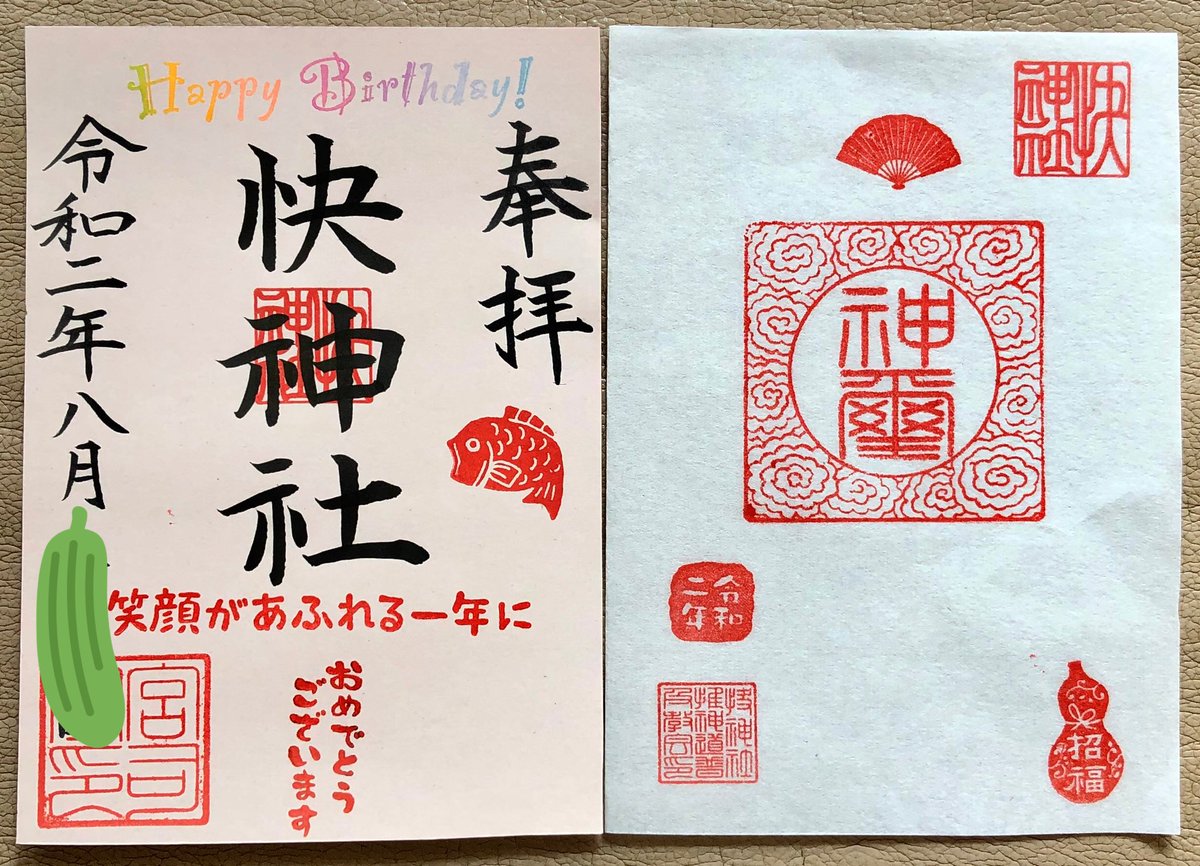 Happy Birthday!
奉拝
快神社
快神社
令和二年八月
笑顔があふれる一年に
おめでとう
ございます
宮司
印
快神社
神璽
令和
二年
招福